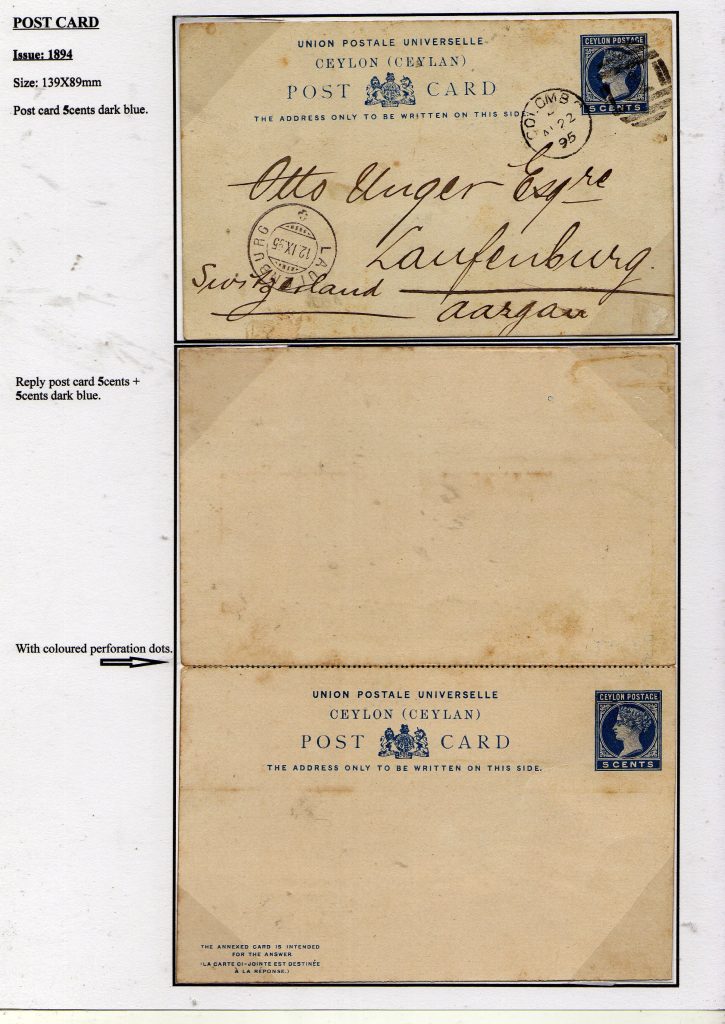 POST CARD
Issue: 1894
Size: 139X89mm
Post card 5cents dark blue.
UNION POSTALE UNIVERSELLE
CEYLON (CEYLAN)
POST CARD
THE ADDRESS ONLY TO BE WRITTEN ON THIS SIDE.
CEYLON POSTAGE
5 CENTS
COLOMBO
22
95
Otto Unger Esqre
Laufenburg.
Switzerland
Aargau
LAUFENBURG
12.IX.95
Reply post card 5cents +
5cents dark blue.
With coloured perforation dots.
UNION POSTALE UNIVERSELLE
CEYLON (CEYLAN)
POST CARD
THE ADDRESS ONLY TO BE WRITTEN ON THIS SIDE.
CEYLON POSTAGE
5 CENTS
THE ANNEXED CARD IS INTENDED
FOR THE ANSWER
(LA CARTE CI-JOINTE EST DESTINÉE
À LA RÉPONSE.)